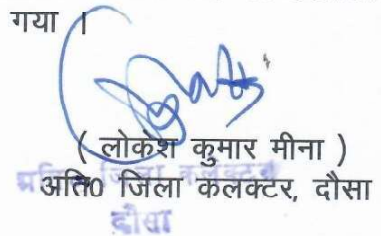 गया ।
( लोकेश कुमार मीना )
अति0 जिला कलक्टर, दौसा
दौसा